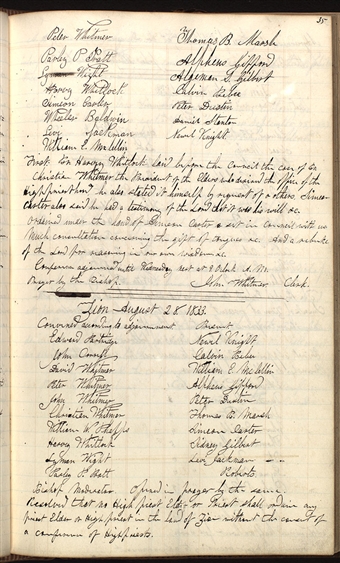 35
Peter Whitmer Thomas B. Marsh
Parley P. Pratt Alpheus Gifford
Lyman Wight Algernon S. Gilbert
Harvy Whitlock Calvin Bebee
Simeon Carter Peter Dustin
Wheeler Baldwin Daniel Stanton
Levi Jackman Newel Knight
William E. McLellin
First br Harvy Whitlock laid before the Council the case of br
Christian Whitmer the President of the Elders who desired the office of the
high priesthood he also stated it himself by request of others, Simeon
Carter also said he had a testimony of the Lord that it was his will &c.
Ordained under the hand of Simeon Carter & sit in Council with us
Much consultation concerning the gift of tongues &c. And a rebuke
of the Lord for reasoning in our own wisdom &c.
Conference adjourned until Wednesday next at 8 Oclock A. M.
Prayer by the Bishop. John Whitmer Clerk.
Zion August 28 1833.
Convened according to adjournment Present
Edward Partridge Newel Knight
John Corrill Calvin Bebee
David Whitmer William E. McLellin
Peter Whitmer Alpheus Gifford
John Whitmer Peter Dustin
Christian Whitmer Thomas B. Marsh
William W. Phelps Simeon Carter
Harvy Whitlock Sidney Gilbert
Lyman Wight Levi Jackman
Parley P. Pratt Roberts
Bishop Moderator Opened in prayer by the same.
Resolved that no High priest Elder or Priest shall ordain any
priest Elder or High priest in the land of Zion without the consent of
a conference of High priests.